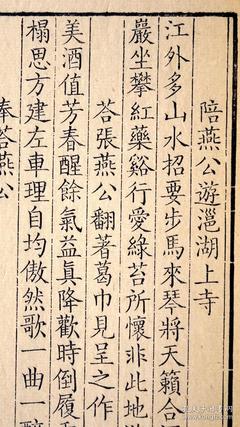 陪燕公遊㴩湖上寺
江外多山水招要步馬來琴將天籟合
巖坐攀紅藥谿行愛綠苔所懷非此地
荅張燕公翻著葛巾見呈之作
美酒值芳春醒餘氣益眞降歡時倒履
榻思方建左車理自均傲然歌一曲一醉
奉荅燕公